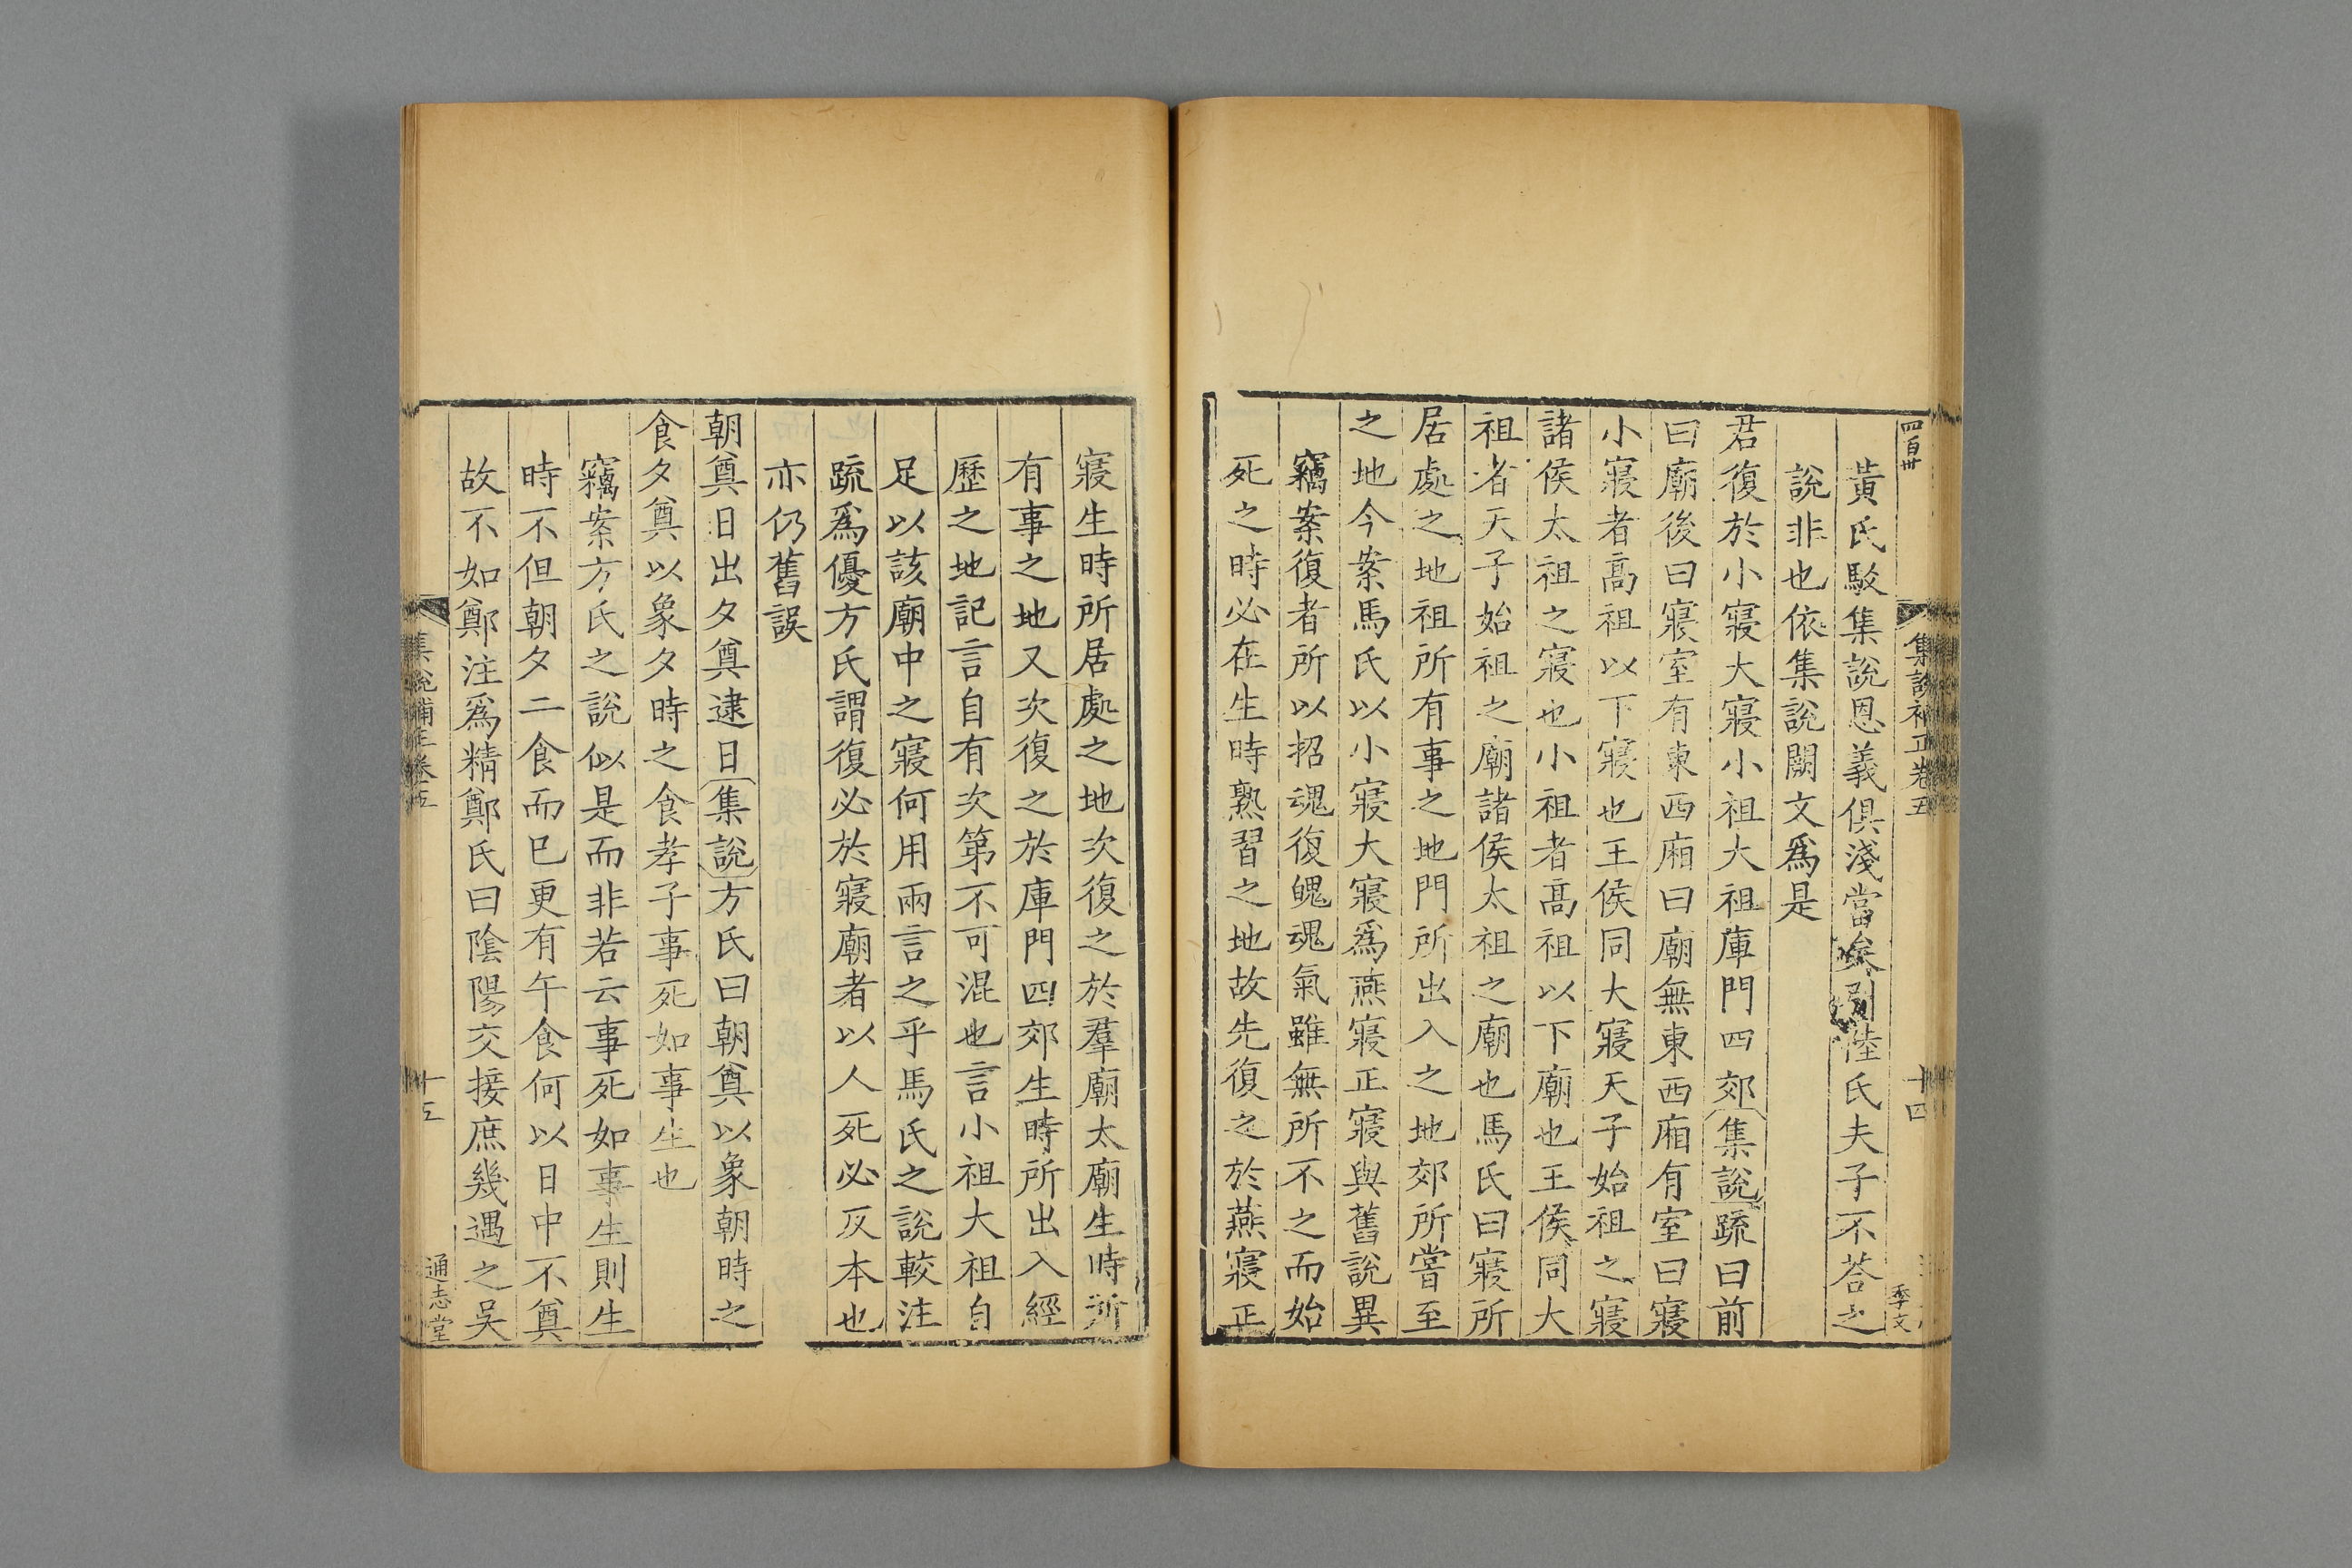 四百卅
集說補正卷五
十四
季文
黃氏駁集說恩義俱淺當矣引陸氏夫子不荅之
說非也依集說闕文爲是
君復於小寢大寢小祖大祖庫門四郊集說疏曰前
曰廟後曰寢室有東西廂曰廟無東西廂有室曰寢
小寢者高祖以下寢也王侯同大寢天子始祖之寢
諸侯太祖之寢也小祖者高祖以下廟也王侯同大
祖者天子始祖之廟諸侯太祖之廟也馬氏曰寢所
居處之地祖所有事之地門所出入之地郊所嘗至
之地今案馬氏以小寢大寢爲燕寢正寢與舊說異
竊案復者所以招魂復魄魂氣雖無所不之而始
死之時必在生時熟習之地故先復之於燕寢正
寢生時所居處之地次復之於羣廟太廟生時所
有事之地又次復之於庫門四郊生時所出入經
歷之地記言自有次第不可混也言小祖大祖自
足以該廟中之寢何用兩言之乎馬氏之說較注
疏爲優方氏謂復必於寢廟者以人死必反本也
亦仍舊誤
朝奠日出夕奠逮日集說方氏曰朝奠以象朝時之
食夕奠以象夕時之食孝子事死如事生也
竊案方氏之說似是而非若云事死如事生則生
時不但朝夕二食而已更有午食何以日中不奠
故不如鄭注爲精鄭氏曰陰陽交接庶幾遇之吳
集說補正卷五
十五
通志堂